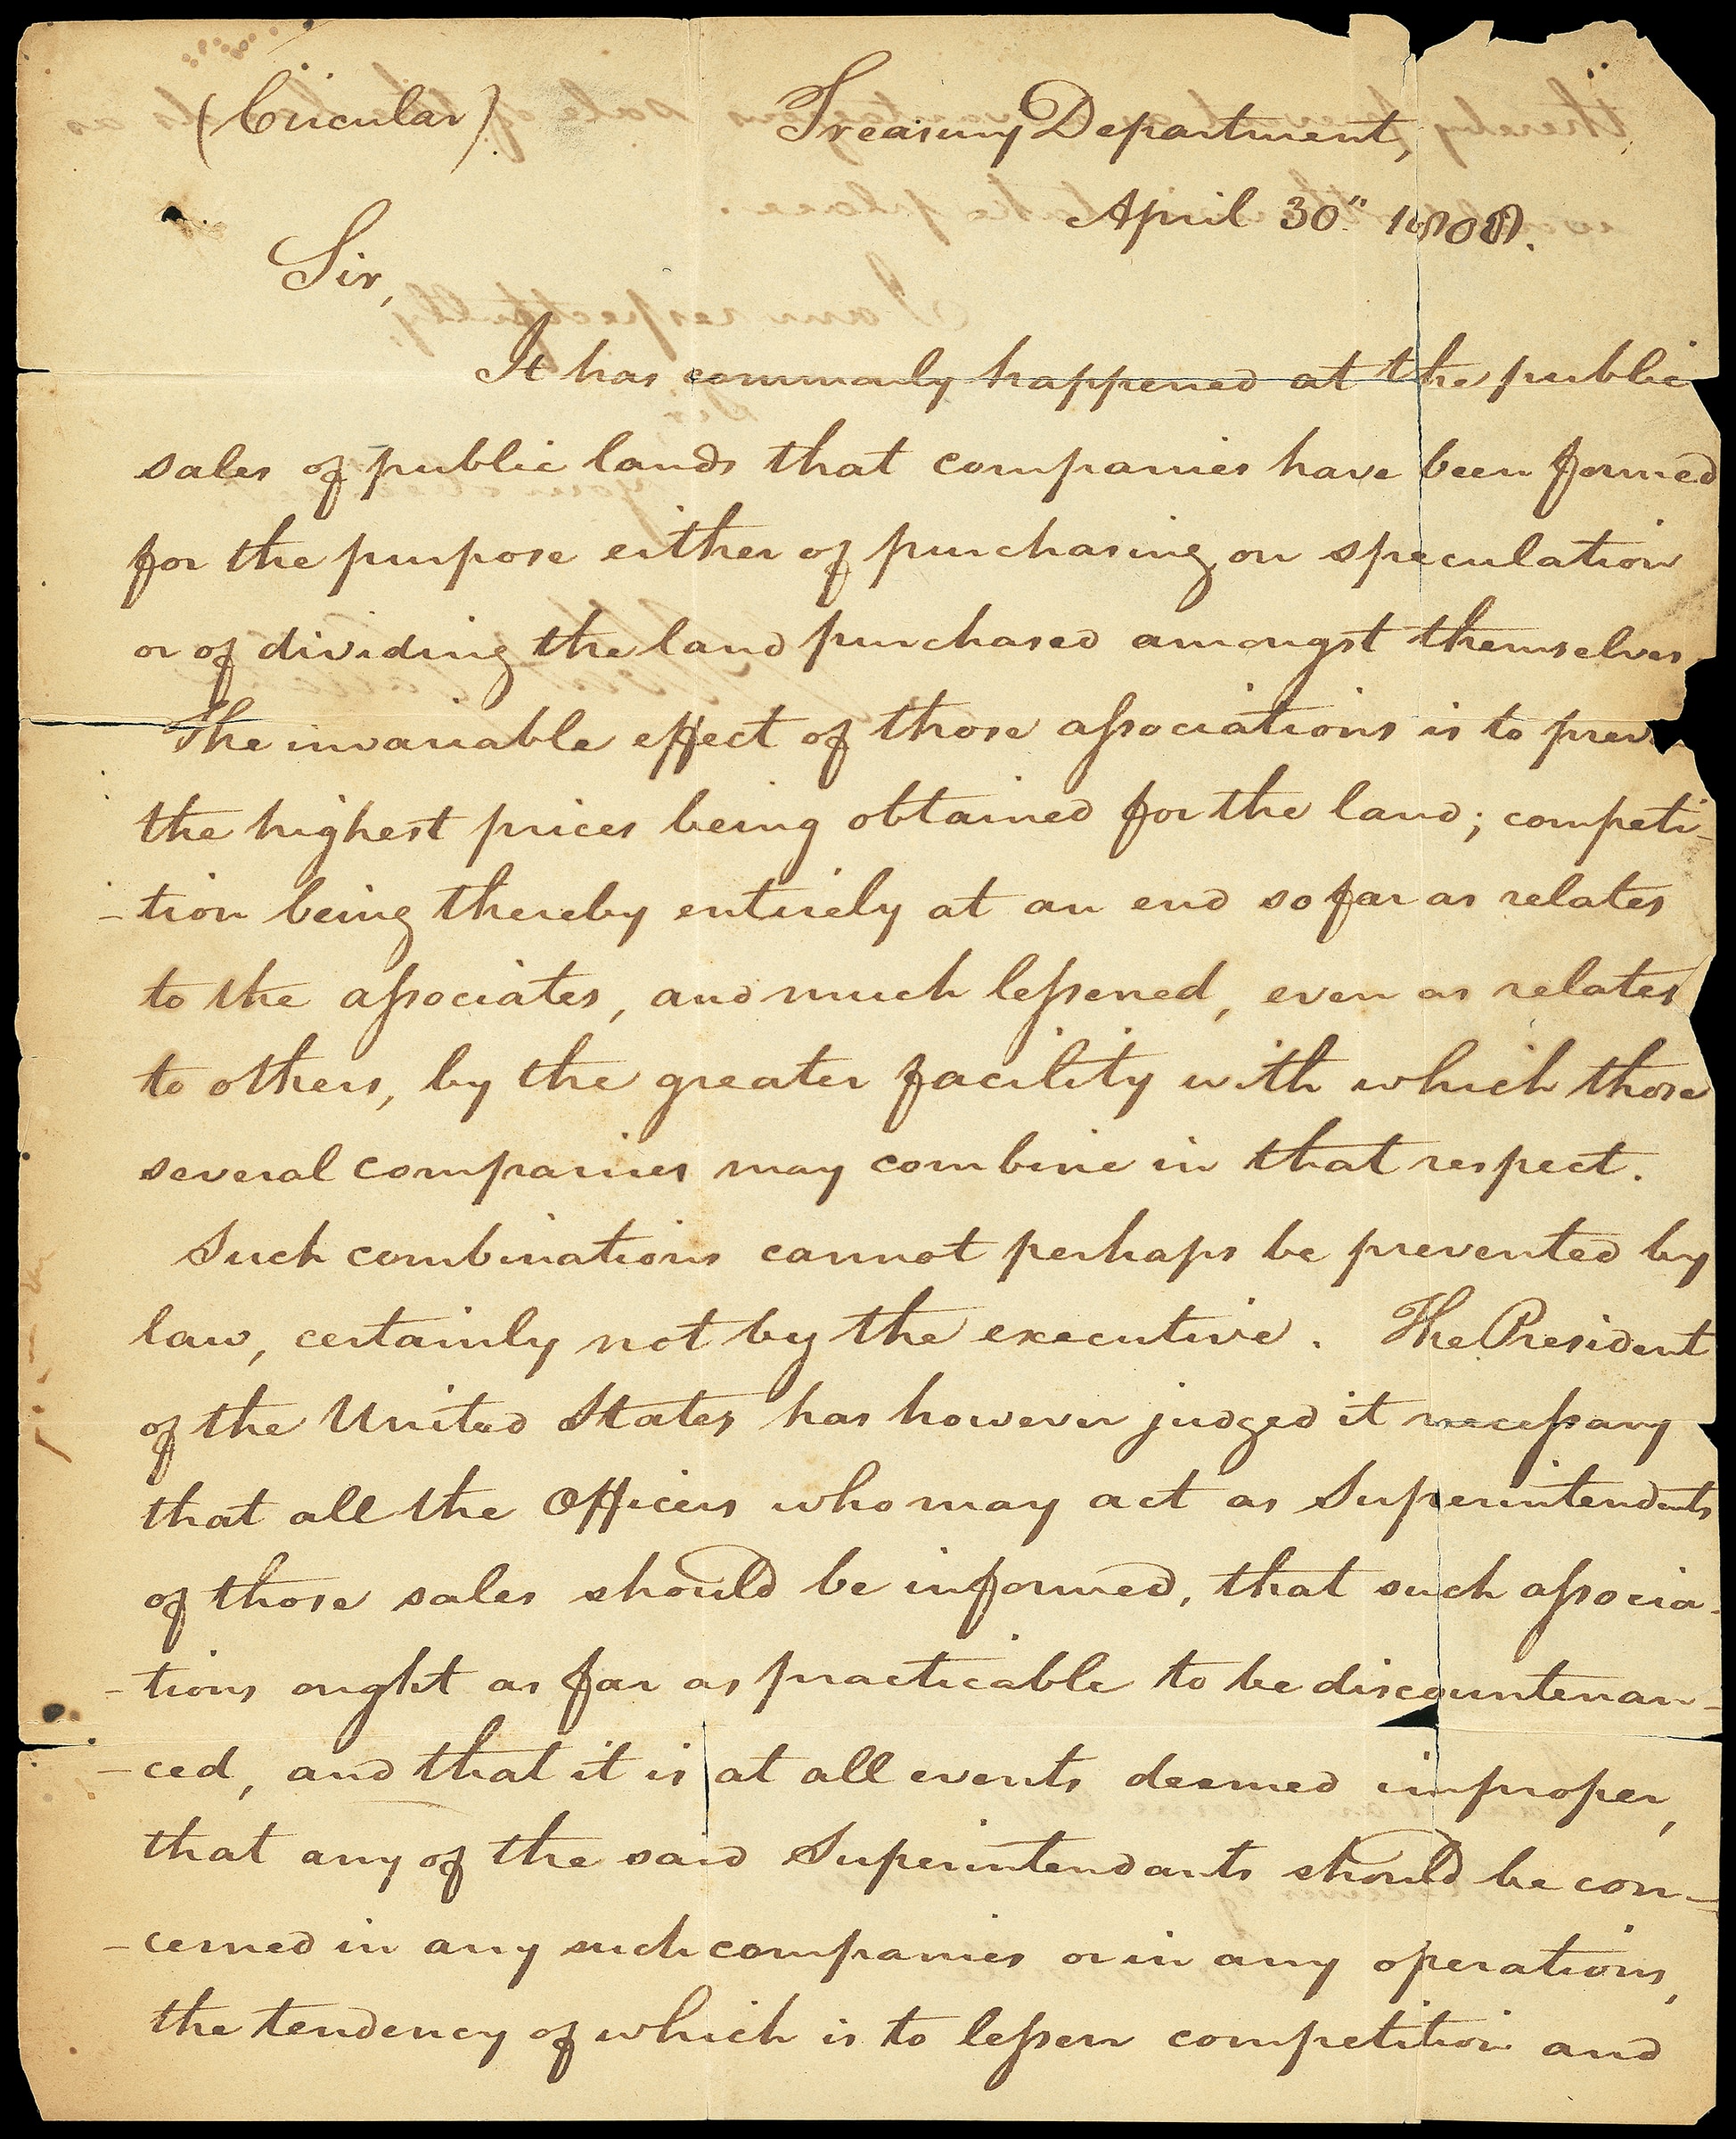 (Circular)
Treasury Department,
April 30" 1808.
Sir,
It has commonly happened at the public
sales of public lands that companies have been formed
for the purpose either of purchasing on speculation
or of dividing the land purchased amongst themselves
The invariable effect of those associations is to
the highest prices being obtained for the land; competi-
-tion being thereby entirely at an end so far as relates
to the associates, and much lessened, even as relates
to others, by the greater facility with which those
several companies may combine in that respect.
Such combinations cannot perhaps be prevented by
law, certainly not by the executive. The President
of the United States has however judged it necessary
that all the Officers who may act as Superintendents
of those sales should be informed, that such associa-
-tions ought as far as practicable to be discountenan-
-ced, and that it is at all events deemed improper,
that any of the said Superintendants should be con-
-cerned in any such companies or in any operations,
the tendency of which is to lessen competition and